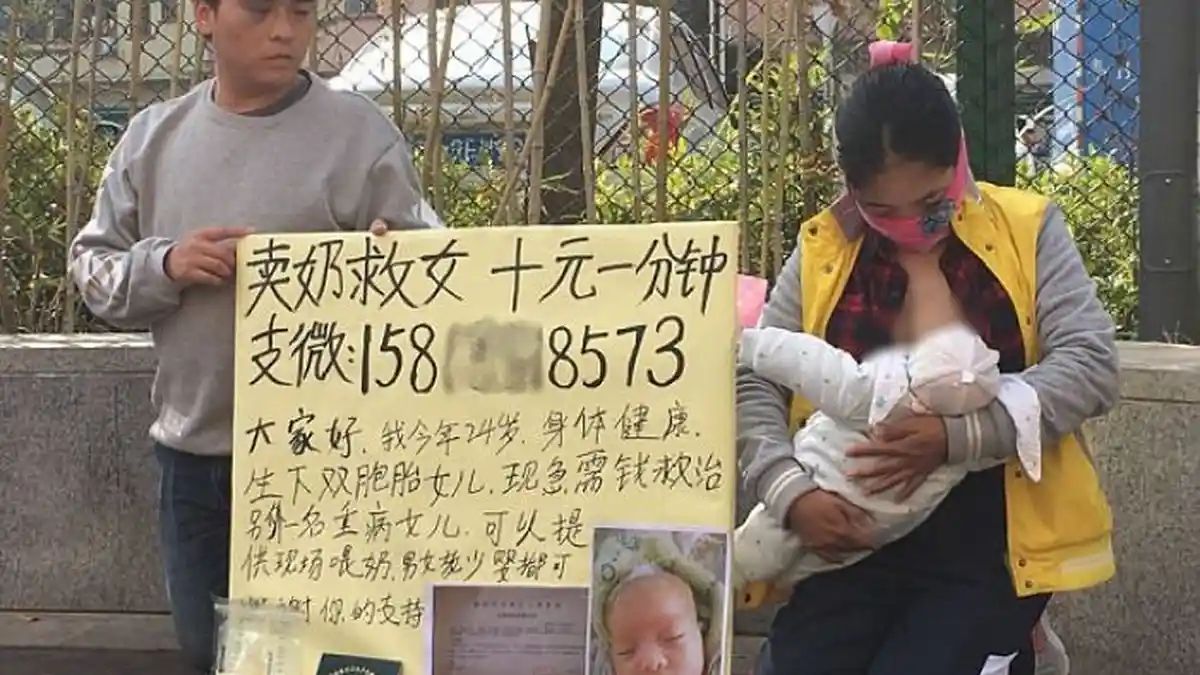 卖奶救女 十元一分钟
支微:158 8573
大家好.我今年24岁.身体健康.
生下双胞胎女儿.现急需钱救治
另外一名重病女儿.可以提
供现场喂奶.男女老少婴都可
谢谢你的支持